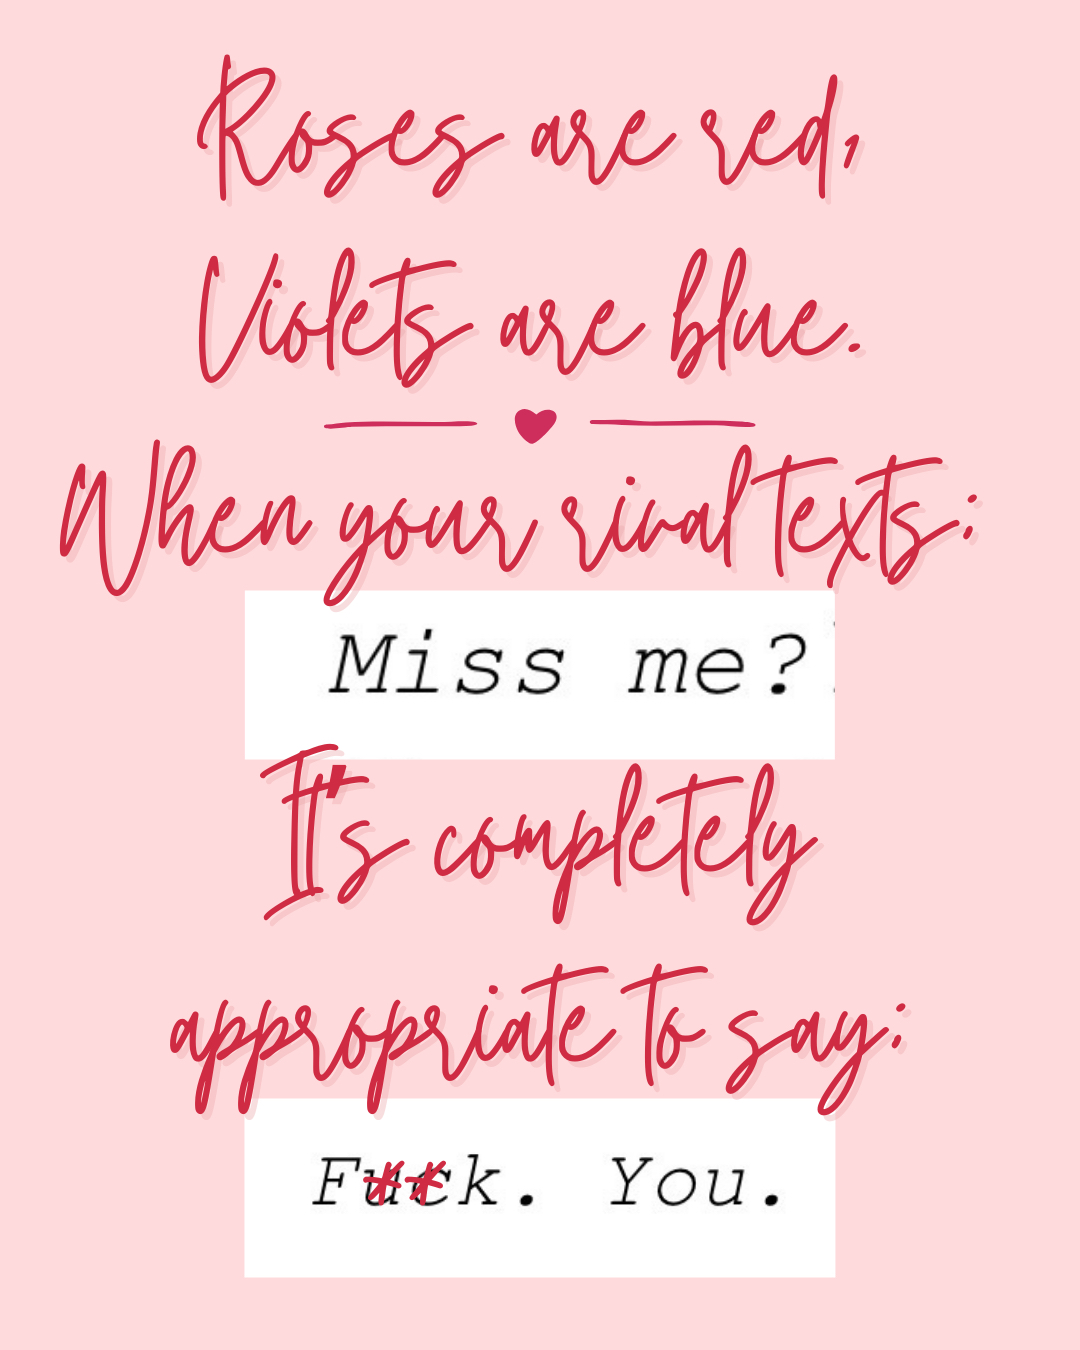 Roses are red,
Violets are blue.
When your rival texts:
Miss me?
It's completely
appropriate to say:
F**k. You.